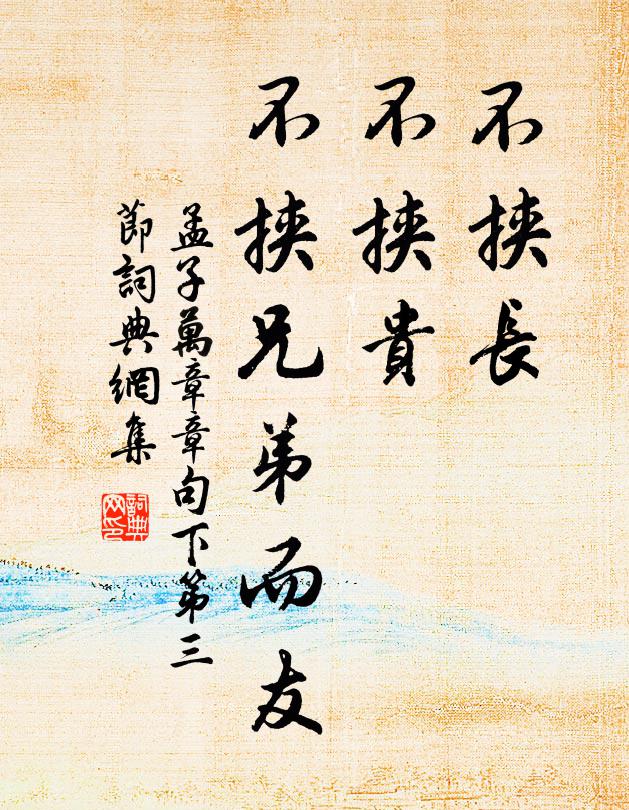 不挾長
不挾貴
不挾兄弟而友
孟子萬章章句下第三
節詞典網集
詞典
网印